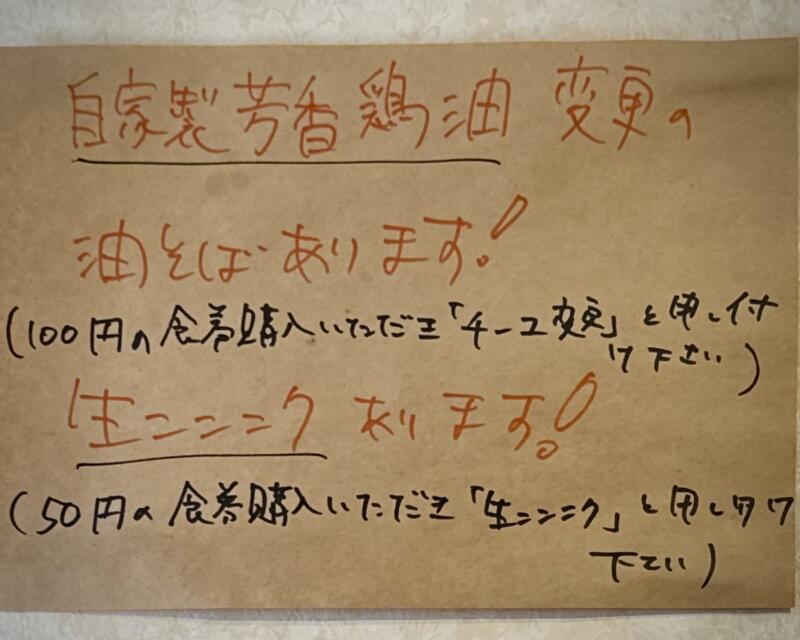 自家製芳香鶏油 変更の
油そばあります!
(100円の食券購入いただき「チーユ変更」と申し付
け下さい)
生ニンニクあります!
(50円の食券購入いただき「生ニンニク」と申し付け
下さい)